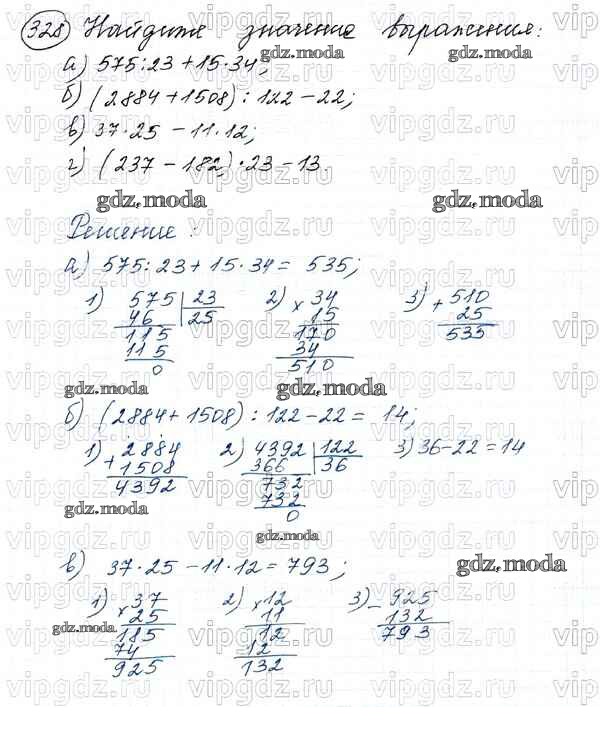 328 Найдите значение выражения:
а) 575:23+15·34;
б) (2884+1508) : 122-22;
в) 37·25 - 11·12;
г) (237 - 182)·23-13.
Решение:
а) 575:23+15·34= 535;
1) 575 23 2) × 34 3) + 510
46 25 15 25
115 170 535
115 34
0 510
б) (2884+1508) : 122-22= 14;
1) 2884 2) 4392 122 3) 36-22=14
+1508 366 36
4392 732
732
0
в) 37·25 - 11·12 = 793;
1) × 37 2) × 12 3) - 925
25 11 132
185 12 793
74 12
925 132
vipgdz.ru
gdz.moda